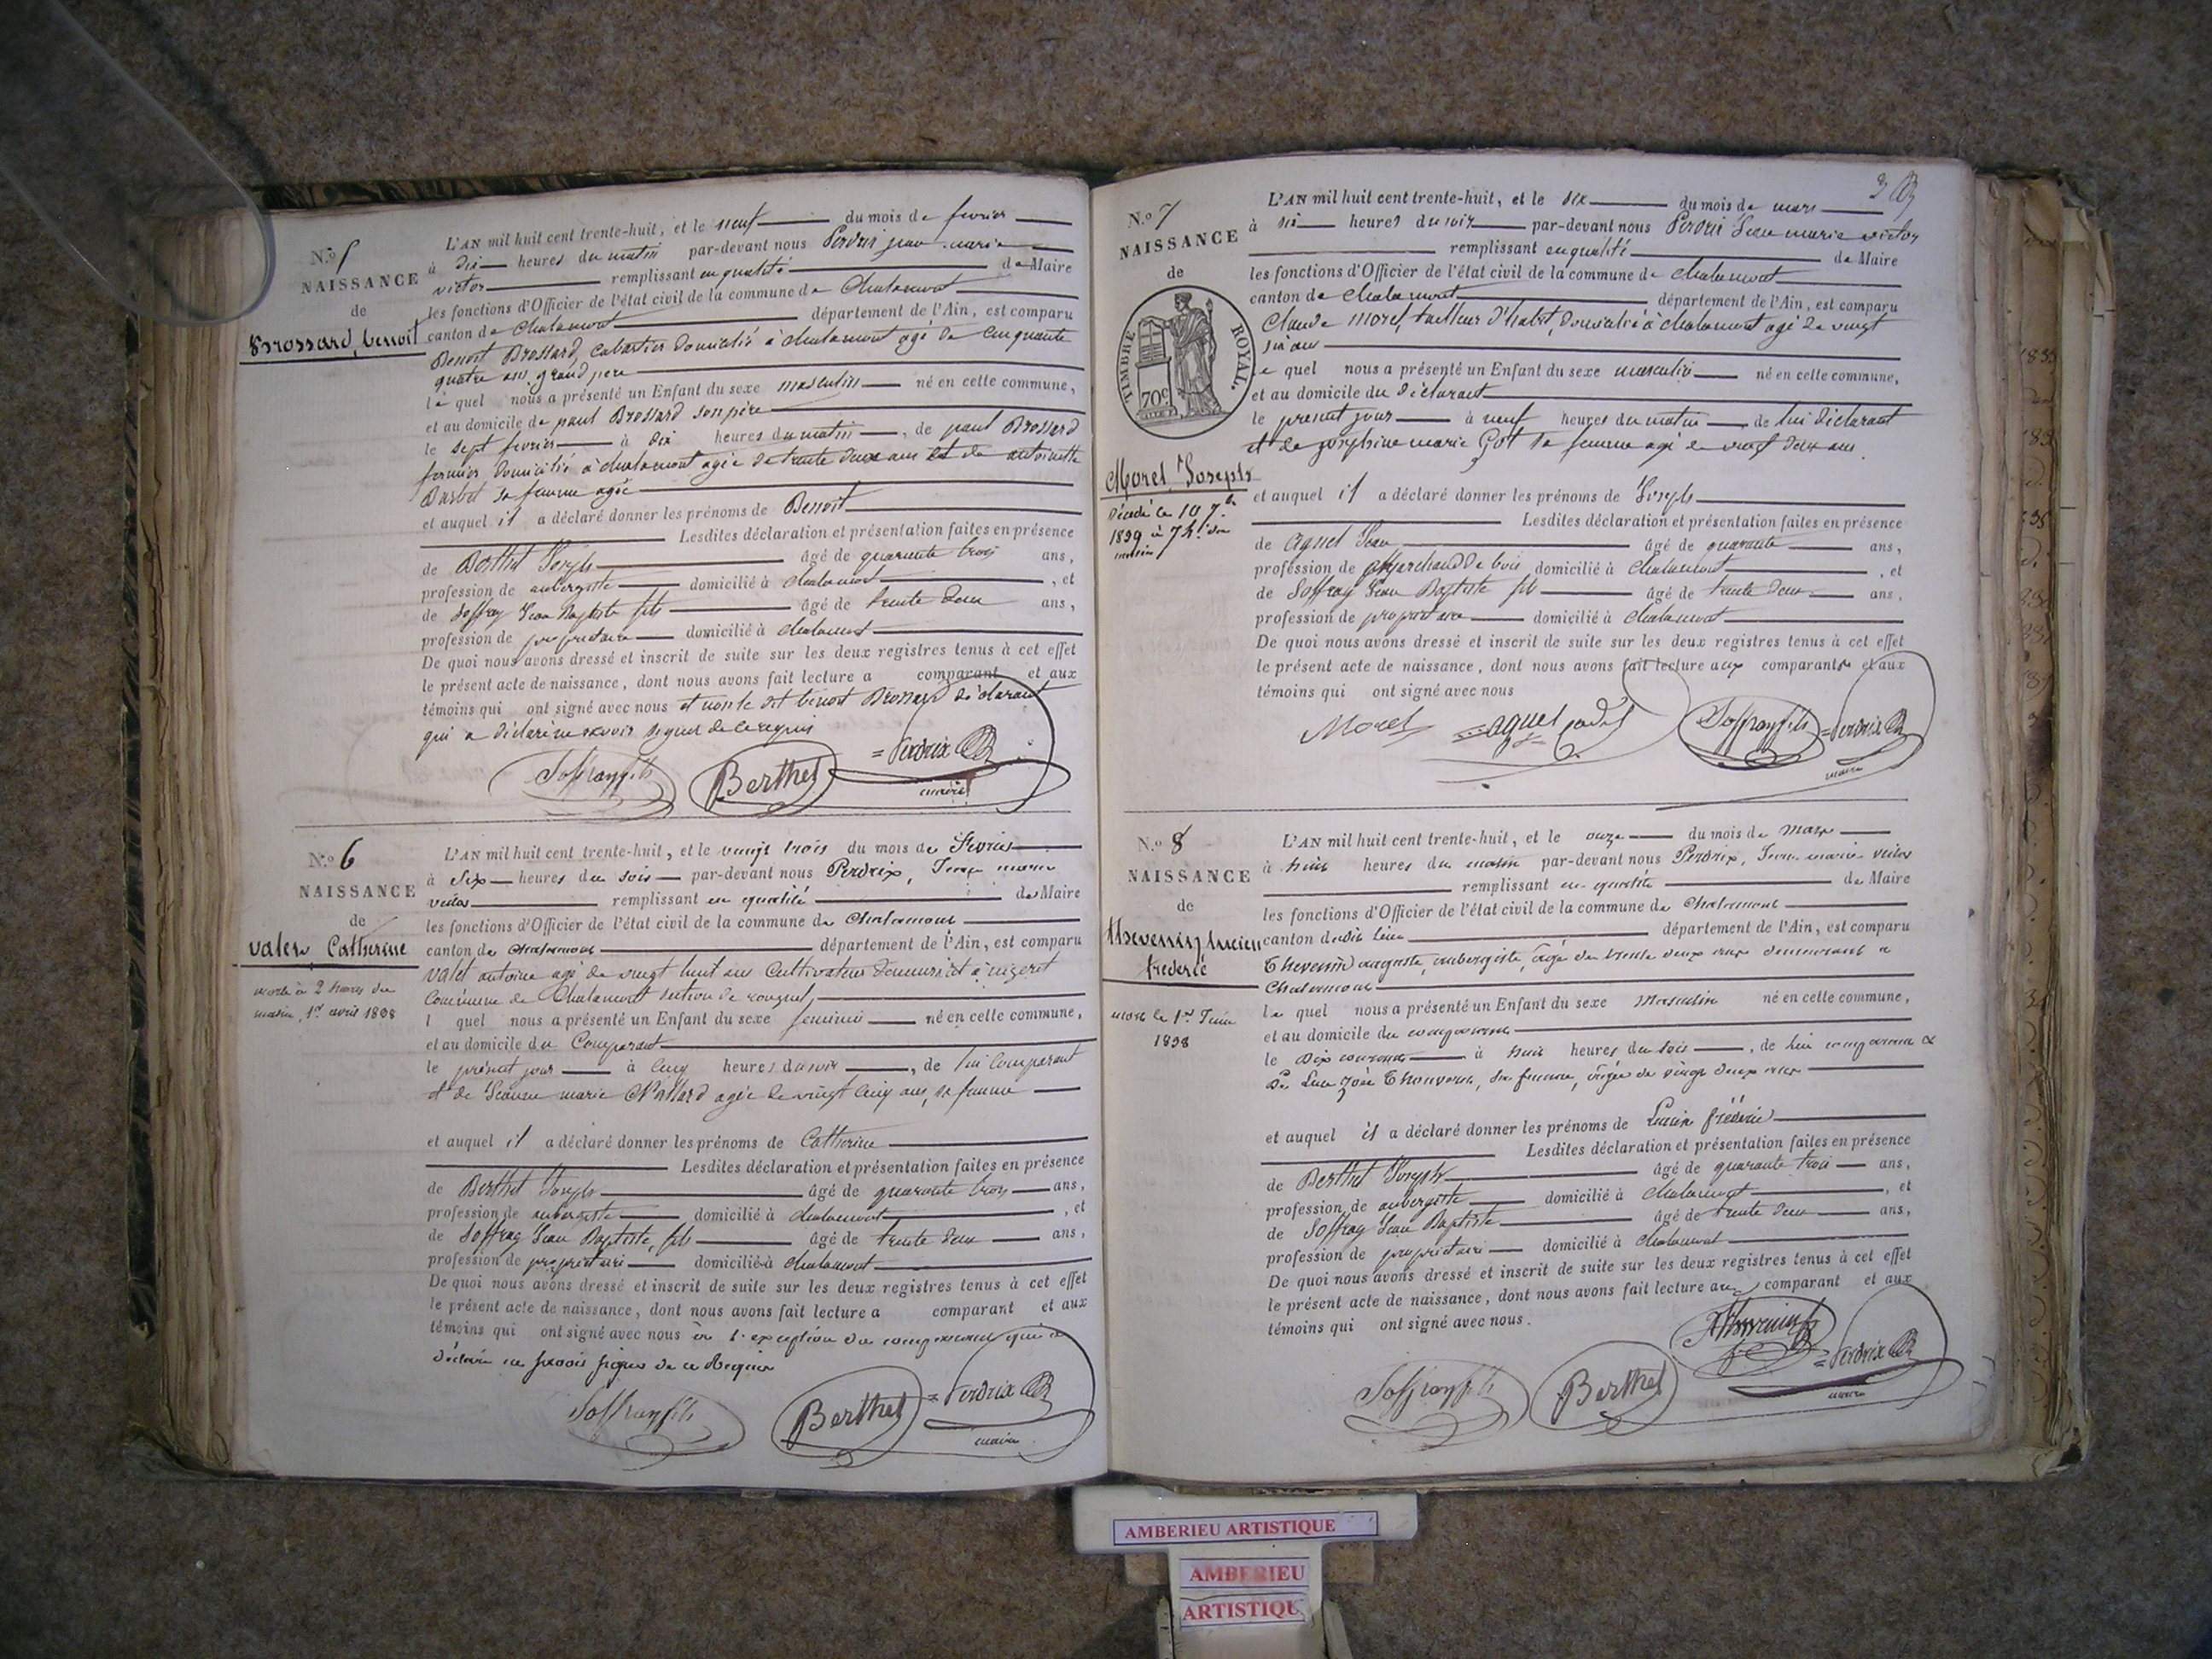 N.º 5
NAISSANCE
de
Brossard, benoit
L'AN mil huit cent trente-huit, et le neuf du mois de fevrier
à dix heures du matin par-devant nous Perdrix jean marie
victor remplissant en qualité de Maire
les fonctions d'Officier de l'état civil de la commune de Chalamont
canton de Chalamont département de l'Ain, est comparu
Benoit Brossard, cabartier domicilié à chalamont agé de cinquante
quatre ans grand pere
le quel nous a présenté un Enfant du sexe masculin né en cette commune,
et au domicile de paul Brossard son père
le sept fevrier à dix heures du matin, de paul Brossard
fermier domicilié à chalamont agée de trente deux ans et de antoinette
sa femme agée
et auquel il a déclaré donner les prénoms de Benoit
Lesdites déclaration et présentation faites en présence
de Berthet Joseph âgé de quarante trois ans,
profession de aubergiste domicilié à chalamont, et
de Soffray Jean Baptiste fils âgé de trente deux ans,
profession de propriétaire domicilié à chalamont
De quoi nous avons dressé et inscrit de suite sur les deux registres tenus à cet effet
le présent acte de naissance, dont nous avons fait lecture a comparant et aux
témoins qui ont signé avec nous et non le dit benoit Brossard déclarant
qui a déclaré ne savoir signer de ce requis
Soffray fils Berthet Perdrix
maire
N.º 6
NAISSANCE
de
valet, Catherine
morte à 2 heures du
matin, 1er avril 1838
L'AN mil huit cent trente-huit, et le vingt trois du mois de Fevrier
à Six heures du soir par-devant nous Perdrix, Jean marie
victor remplissant en qualité de Maire
les fonctions d'Officier de l'état civil de la commune de Chalamont
canton de Chalamont département de l'Ain, est comparu
valet antoine agé de vingt huit ans Cultivateur demeurant à
Commune de Chalamont section de
l quel nous a présenté un Enfant du sexe feminin né en cette commune,
et au domicile du Comparant
le présent jour à cinq heures du soir, de lui comparant
et de Jeanne marie agée de vingt cinq ans, sa femme
et auquel il a déclaré donner les prénoms de Catherine
Lesdites déclaration et présentation faites en présence
de Berthet Joseph âgé de quarante trois ans,
profession de aubergiste domicilié à chalamont, et
de Soffray Jean Baptiste, fils âgé de trente deux ans,
profession de propriétaire domicilié à chalamont
De quoi nous avons dressé et inscrit de suite sur les deux registres tenus à cet effet
le présent acte de naissance, dont nous avons fait lecture a comparant et aux
témoins qui ont signé avec nous à l'exception du comparant qui a
déclaré ne savoir signer de ce Requis
Soffray fils Berthet Perdrix
maire
N.º 7
NAISSANCE
de
TIMBRE ROYAL.
70c
Morel, Joseph
Décédé le 10 7bre
1839 à 7 h. du
matin
L'AN mil huit cent trente-huit, et le dix du mois de mars
à six heures du soir par-devant nous Perdrix Jean marie victor
remplissant en qualité de Maire
les fonctions d'Officier de l'état civil de la commune de Chalamont
canton de Chalamont département de l'Ain, est comparu
Claude Morel, tailleur d'habit, domicilié à chalamont agé de vingt
six ans
le quel nous a présenté un Enfant du sexe masculin né en cette commune,
et au domicile du déclarant
le present jour à neuf heures du matin, de lui déclarant
et de josephine marie Got sa femme agé de vingt deux ans.
et auquel il a déclaré donner les prénoms de Joseph
Lesdites déclaration et présentation faites en présence
de Aguel Jean âgé de quarante ans,
profession de Marchand de bois domicilié à Chalamont, et
de Soffray Jean Baptiste fils âgé de trente deux ans,
profession de propriétaire domicilié à Chalamont
De quoi nous avons dressé et inscrit de suite sur les deux registres tenus à cet effet
le présent acte de naissance, dont nous avons fait lecture aux comparants et aux
témoins qui ont signé avec nous
Morel aguel cadet Soffray fils Perdrix
maire
N.º 8
NAISSANCE
de
Thevenin, lucien
frederic
mort le 1er Juin
1838
L'AN mil huit cent trente-huit, et le onze du mois de mars
à huit heures du matin par-devant nous Perdrix, Jean marie victor
remplissant en qualité de Maire
les fonctions d'Officier de l'état civil de la commune de Chalamont
canton dudit lieu département de l'Ain, est comparu
Thevenin auguste, aubergiste, âgé de trente deux ans demeurant a
Chalamont
le quel nous a présenté un Enfant du sexe Masculin né en cette commune,
et au domicile du comparant
le dix courant à huit heures du soir, de lui comparant &
de zoée Thouverin, sa femme, âgée de vingt deux ans
et auquel il a déclaré donner les prénoms de Lucien frédéric
Lesdites déclaration et présentation faites en présence
de Berthet Joseph âgé de quarante trois ans,
profession de aubergiste domicilié à chalamont, et
de Soffray Jean Baptiste âgé de trente deux ans,
profession de propriétaire domicilié à Chalamont
De quoi nous avons dressé et inscrit de suite sur les deux registres tenus à cet effet
le présent acte de naissance, dont nous avons fait lecture au comparant et aux
témoins qui ont signé avec nous.
Thevenin
Soffray fils Berthet Perdrix
maire
AMBERIEU ARTISTIQUE
AMBERIEU
ARTISTIQU